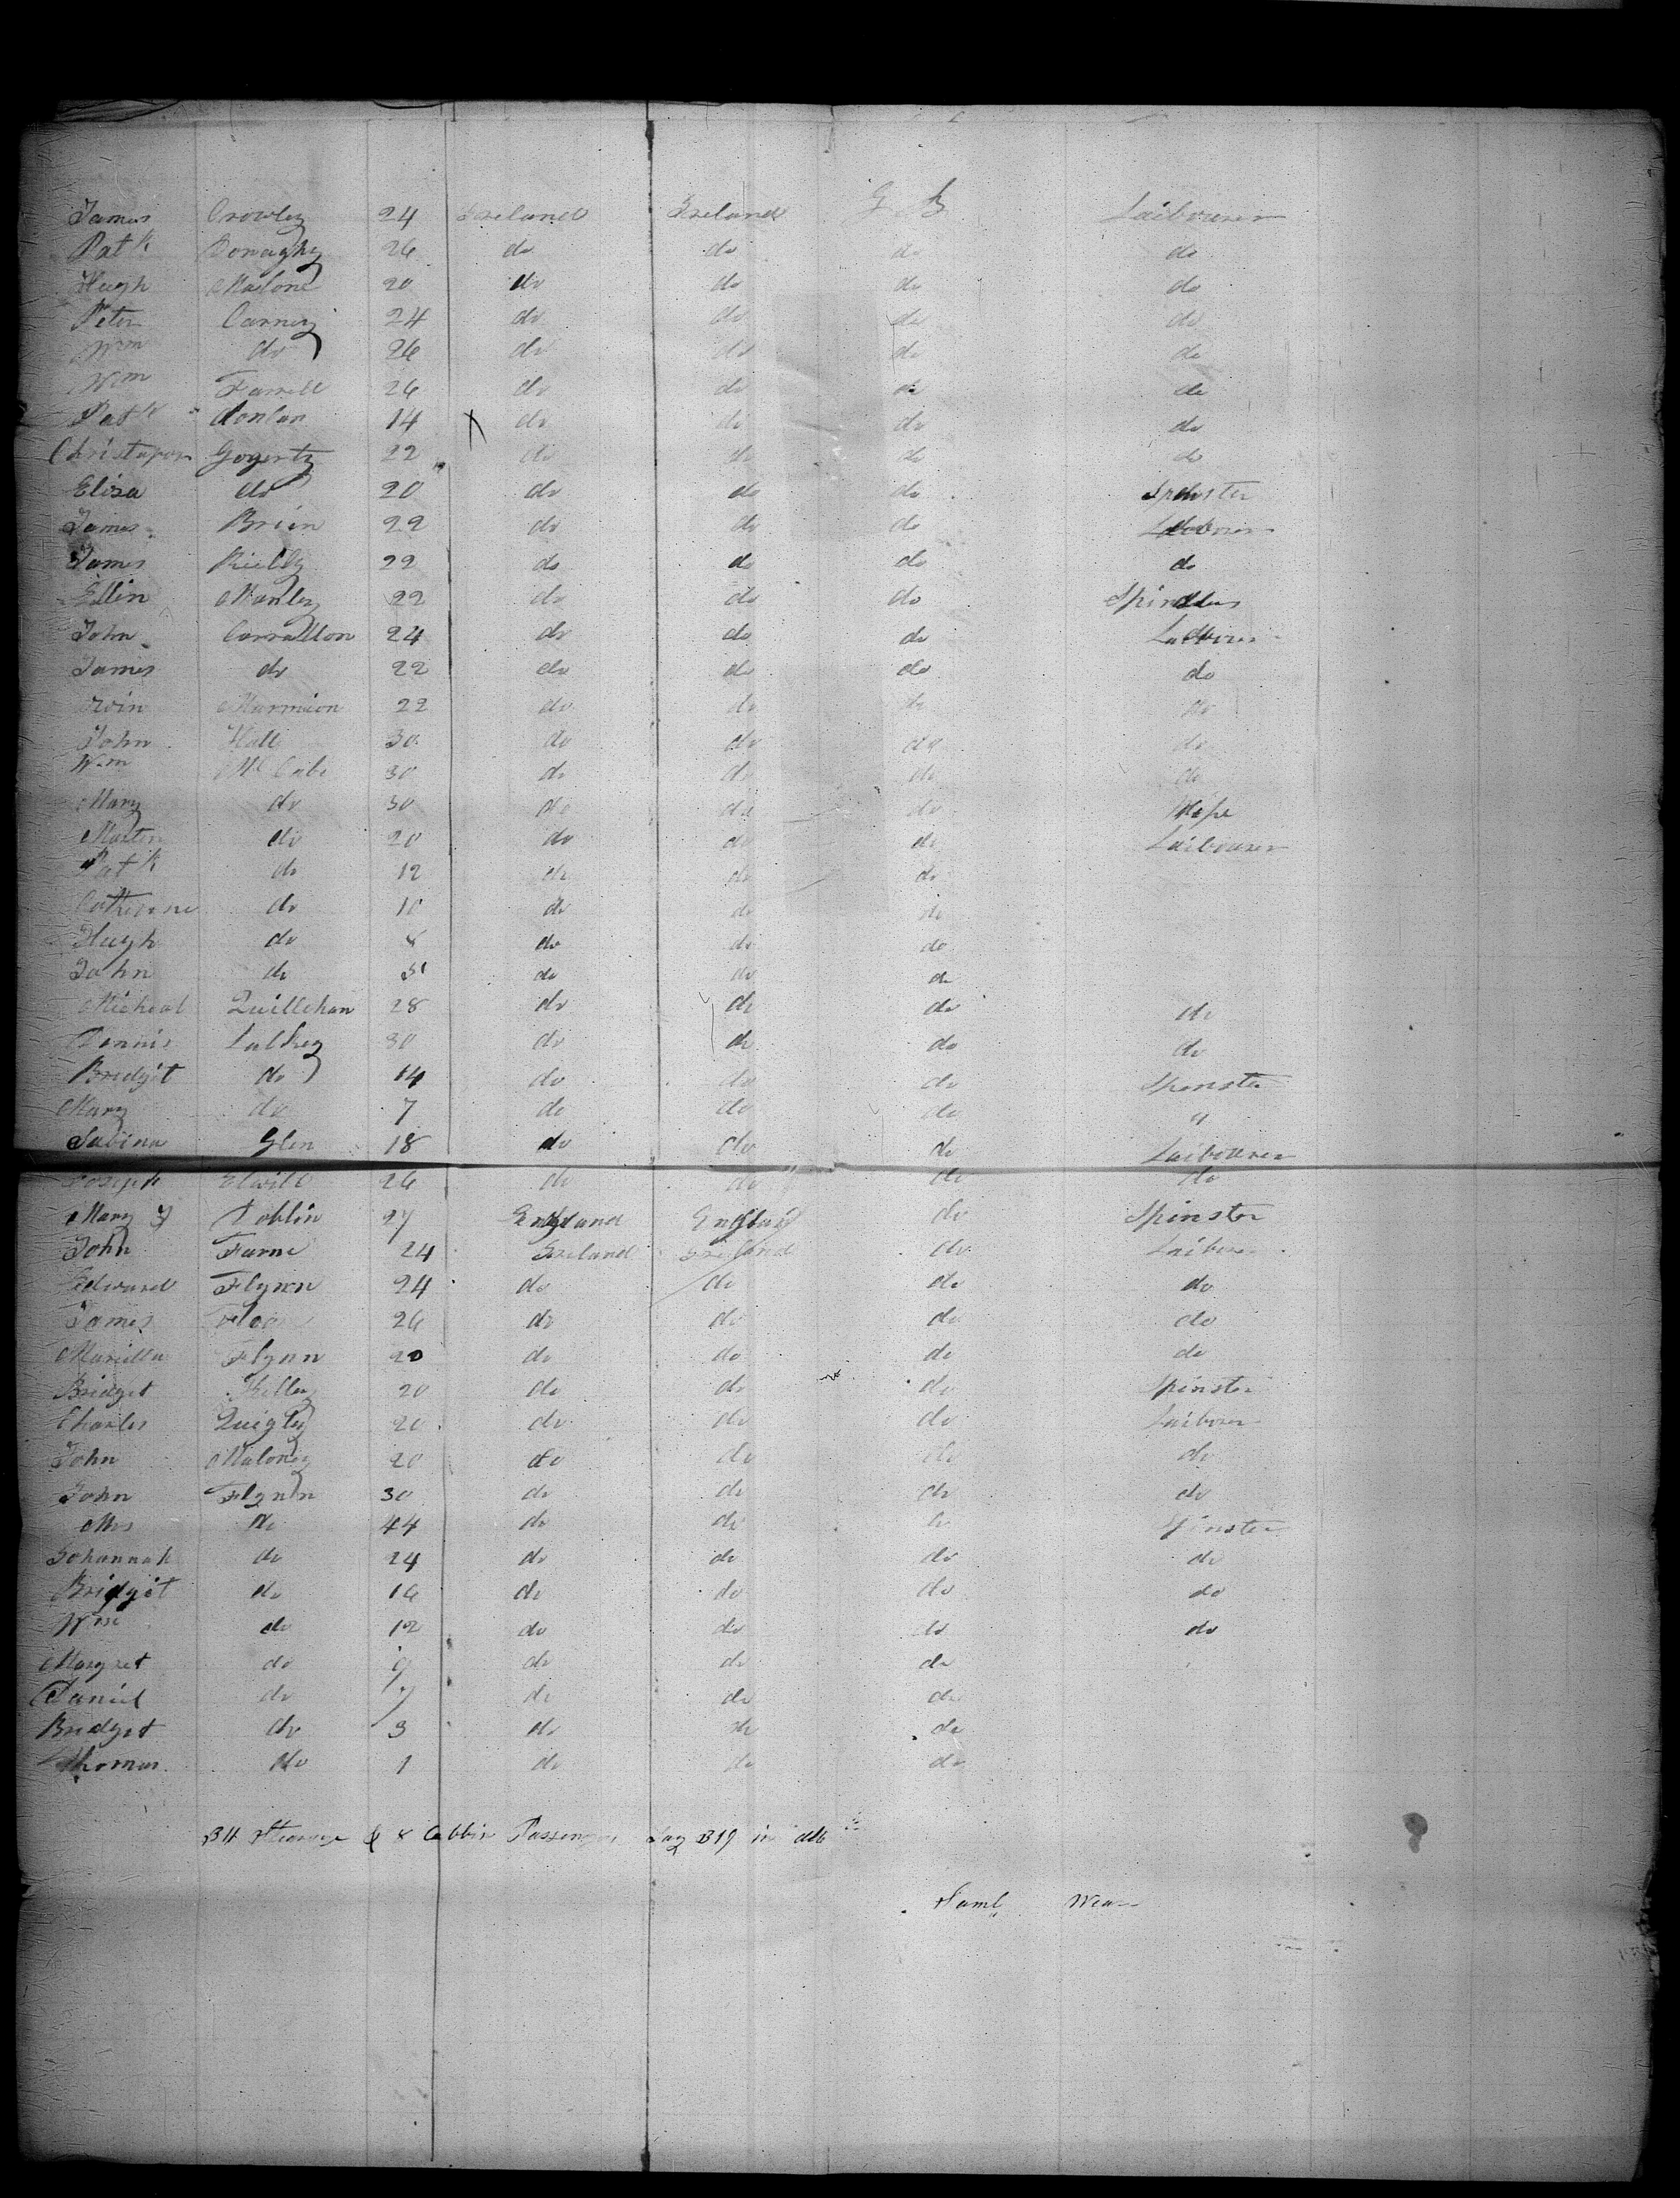 James Crowley 24 Ireland Ireland G B Laibourer
Patk Donaghy 26 do do do do
Hugh Malone 20 do do do do
Peter Carney 24 do do do do
Wm do 26 do do do do
Wm Farrell 26 do do do do
Patk Conlan 14 do do do do
Christopor Gogerty 22 do do do do
Elisa do 20 do do do Spinster
James Brien 22 do do do Labourer
James Rielly 22 do do do do
Ellin Manley 22 do do do Spinster
John Carrallon 24 do do do Labourer
James do 22 do do do do
Marmion 22 do do do do
John Hall 30 do do do do
Wm Mc Cabe 30 do do do do
Mary do 30 do do do Wife
Martin do 20 do do do Laibourer
Patk do 12 do do do
Catherine do 10 do do do
Hugh do 8 do do do
John do do do do
Micheal Quillihan 28 do do do do
Dennis 30 do do do do
Bridgit do 14 do do do Spenster
Mary do 7 do do do "
Sabina Glen 18 do do do Laibourer
Joseph 26 do do do do
Mary Toblin 27 England England do Spinster
John Farne 24 Ireland Ireland do Laibourer
Edward Flynn 24 do do do do
James 26 do do do do
Flynn 20 do do do do
Bridget Kelley 20 do do do Spinster
Charles Quigley 20 do do do Laibourer
John Maloney 20 do do do do
John Flynn 30 do do do do
Mrs do 44 do do do Spinster
Johannah do 24 do do do do
Bridgit do 16 do do do do
Wm do 12 do do do do
Margret do 9 do do do
Daniel do 7 do do do
Bridget do 3 do do do
Thomas do 1 do do do
311 Stearage & 8 Cabbin Passengers Say 319 in all
Saml